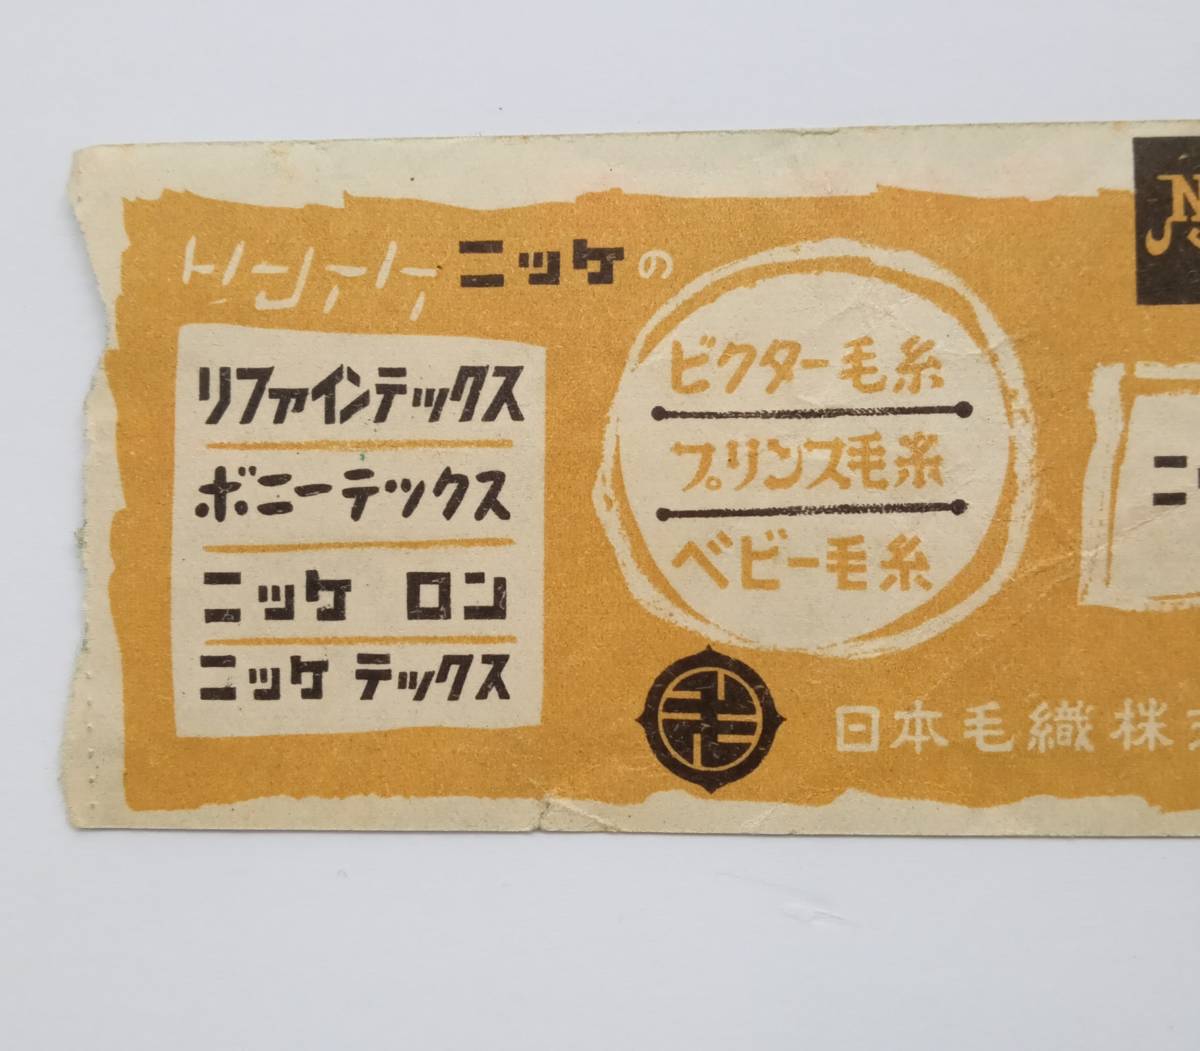 ニッケの
リファインテックス
ボニーテックス
ニッケ ロン
ニッケ テックス
ビクター毛糸
プリンス毛糸
ベビー毛糸
日本毛織株